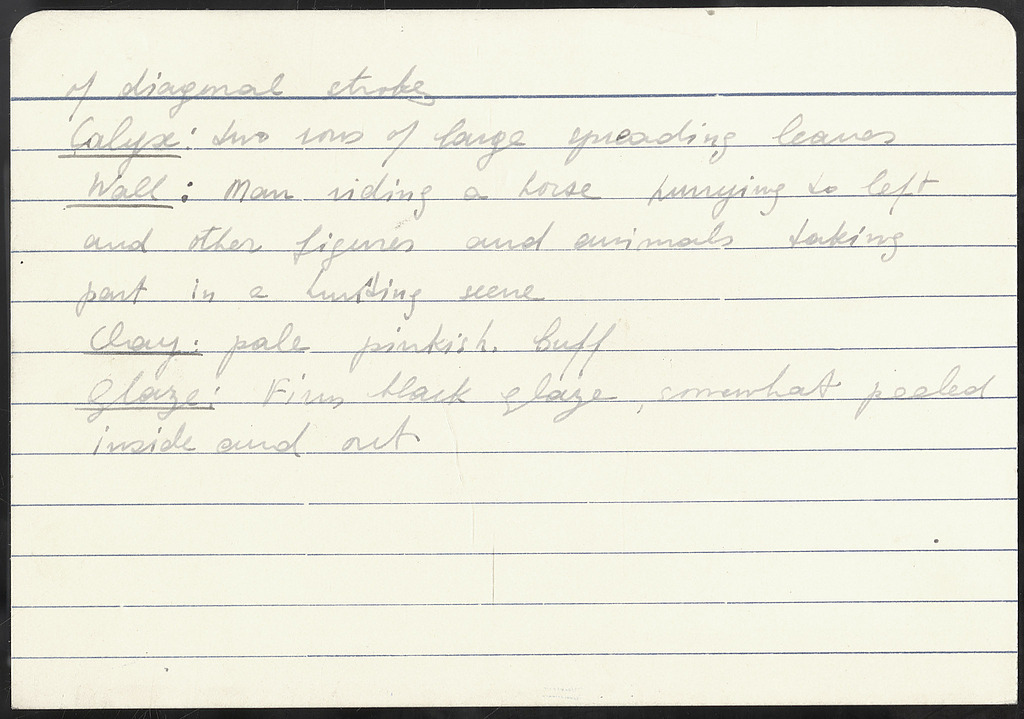 of diagonal strokes
Calyx: two rows of large spreading leaves
Wall: Man riding a horse hurrying to left
and other figures and animals taking
part in a hunting scene
Clay: pale pinkish buff
Glaze: Firm black glaze, somewhat peeled
inside and out